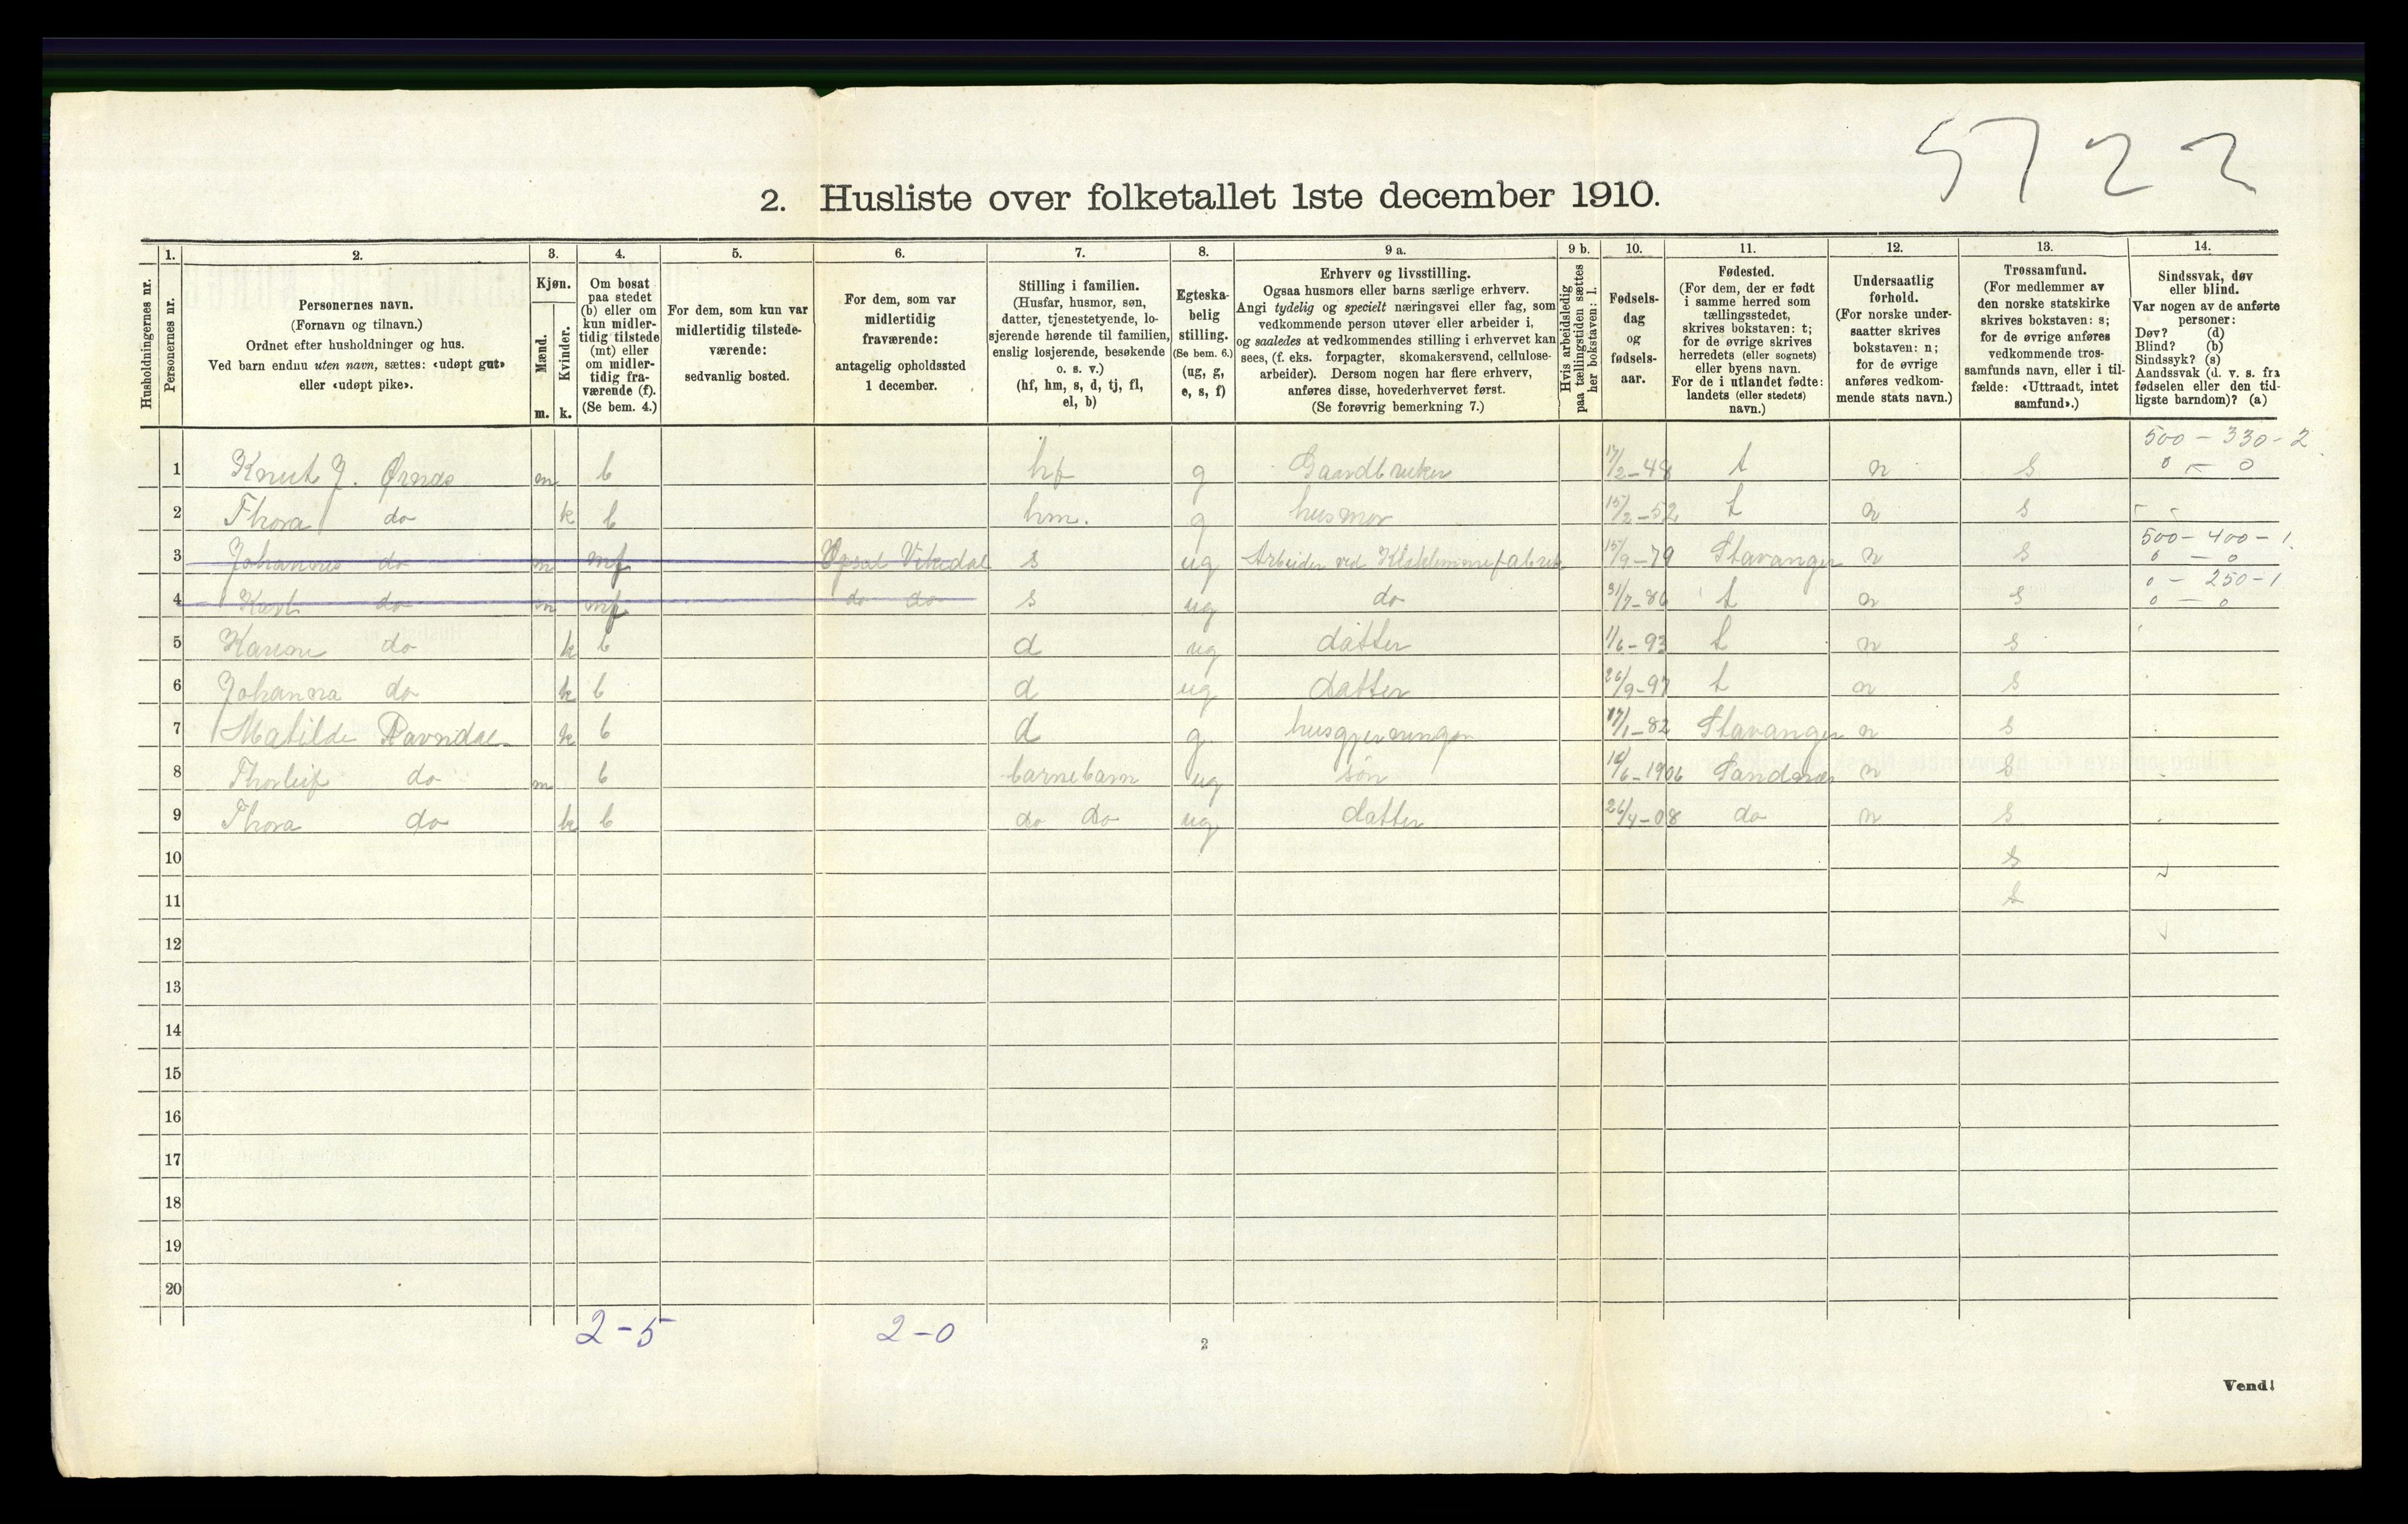 5722
2. Husliste over folketallet 1ste december 1910.
Husholdningernes nr.
1.
Personernes nr.
2.
Personernes navn.
(Fornavn og tilnavn.)
Ordnet efter husholdninger og hus.
Ved barn endnu uten navn, sættes: «udøpt gut»
eller «udøpt pike».
3.
Kjøn.
Mænd.
Kvinder.
m. k.
4.
Om bosat
paa stedet
(b) eller om
kun midler-
tidig tilstede
(mt) eller
om midler-
tidig fra-
værende (f).
(Se bem. 4.)
5.
For dem, som kun var
midlertidig tilstede-
værende:
sedvanlig bosted.
6.
For dem, som var
midlertidig
fraværende:
antagelig opholdssted
1 december.
7.
Stilling i familien.
(Husfar, husmor, søn,
datter, tjenestetyende, lo-
sjerende hørende til familien,
enslig losjerende, besøkende
o. s. v.)
(hf, hm, s, d, tj, fl,
el, b)
8.
Egteska-
belig
stilling.
(Se bem. 6.)
(ug, g,
e, s, f)
9 a.
Erhverv og livsstilling.
Ogsaa husmors eller barns særlige erhverv.
Angi tydelig og specielt næringsvei eller fag, som
vedkommende person utøver eller arbeider i,
og saaledes at vedkommendes stilling i erhvervet kan
sees, (f. eks. forpagter, skomakersvend, cellulose-
arbeider). Dersom nogen har flere erhverv,
anføres disse, hovederhvervet først.
(Se forøvrig bemerkning 7.)
9 b.
Hvis arbeidsledig
paa tællingstiden sættes
her bokstaven: l.
10.
Fødsels-
dag
og
fødsels-
aar.
11.
Fødested.
(For dem, der er født
i samme herred som
tællingsstedet,
skrives bokstaven: t;
for de øvrige skrives
herredets (eller sognets)
eller byens navn.
For de i utlandet fødte:
landets (eller stedets)
navn.)
12.
Undersaatlig
forhold.
(For norske under-
saatter skrives
bokstaven: n;
for de øvrige
anføres vedkom-
mende stats navn.)
13.
Trossamfund.
(For medlemmer av
den norske statskirke
skrives bokstaven: s;
for de øvrige anføres
vedkommende tros-
samfunds navn, eller i til-
fælde: «Uttraadt, intet
samfund».)
14.
Sindssvak, døv
eller blind.
Var nogen av de anførte
personer:
Døv? (d)
Blind? (b)
Sindssyk? (s)
Aandssvak (d. v. s. fra
fødselen eller den tid-
ligste barndom)? (a)
500 - 330 - 2
1 Knut J. Ørnes m b hf g Gaardbruker 17/2-48 t n s 0 - 0
2 Thora do k b hm. g husmor 15/2-52 t n s - -
500 - 400 - 1
3 Johannes do m mf Vikedal s ug Arbeider ved 15/9-79 Stavanger n s 0 - 0
0 - 250 - 1
4 Karl do m mf do do s ug do 31/7-86 t n s 0 - 0
5 Karene do k b d ug datter 1/6-93 t n s
6 Johanna do k b d ug datter 26/9-97 t n s
7 Matilde Ravndal k b d g husgjerningen 17/1-82 Stavanger n s
8 Thorleif do m b barnebarn ug søn 16/6-1906 Sandnæs n s
9 Thora do k b do do ug datter 26/4-08 do n s
10 s
11 s
12
13
14
15
16
17
18
19
20
2-5 2-0
2
Vend!